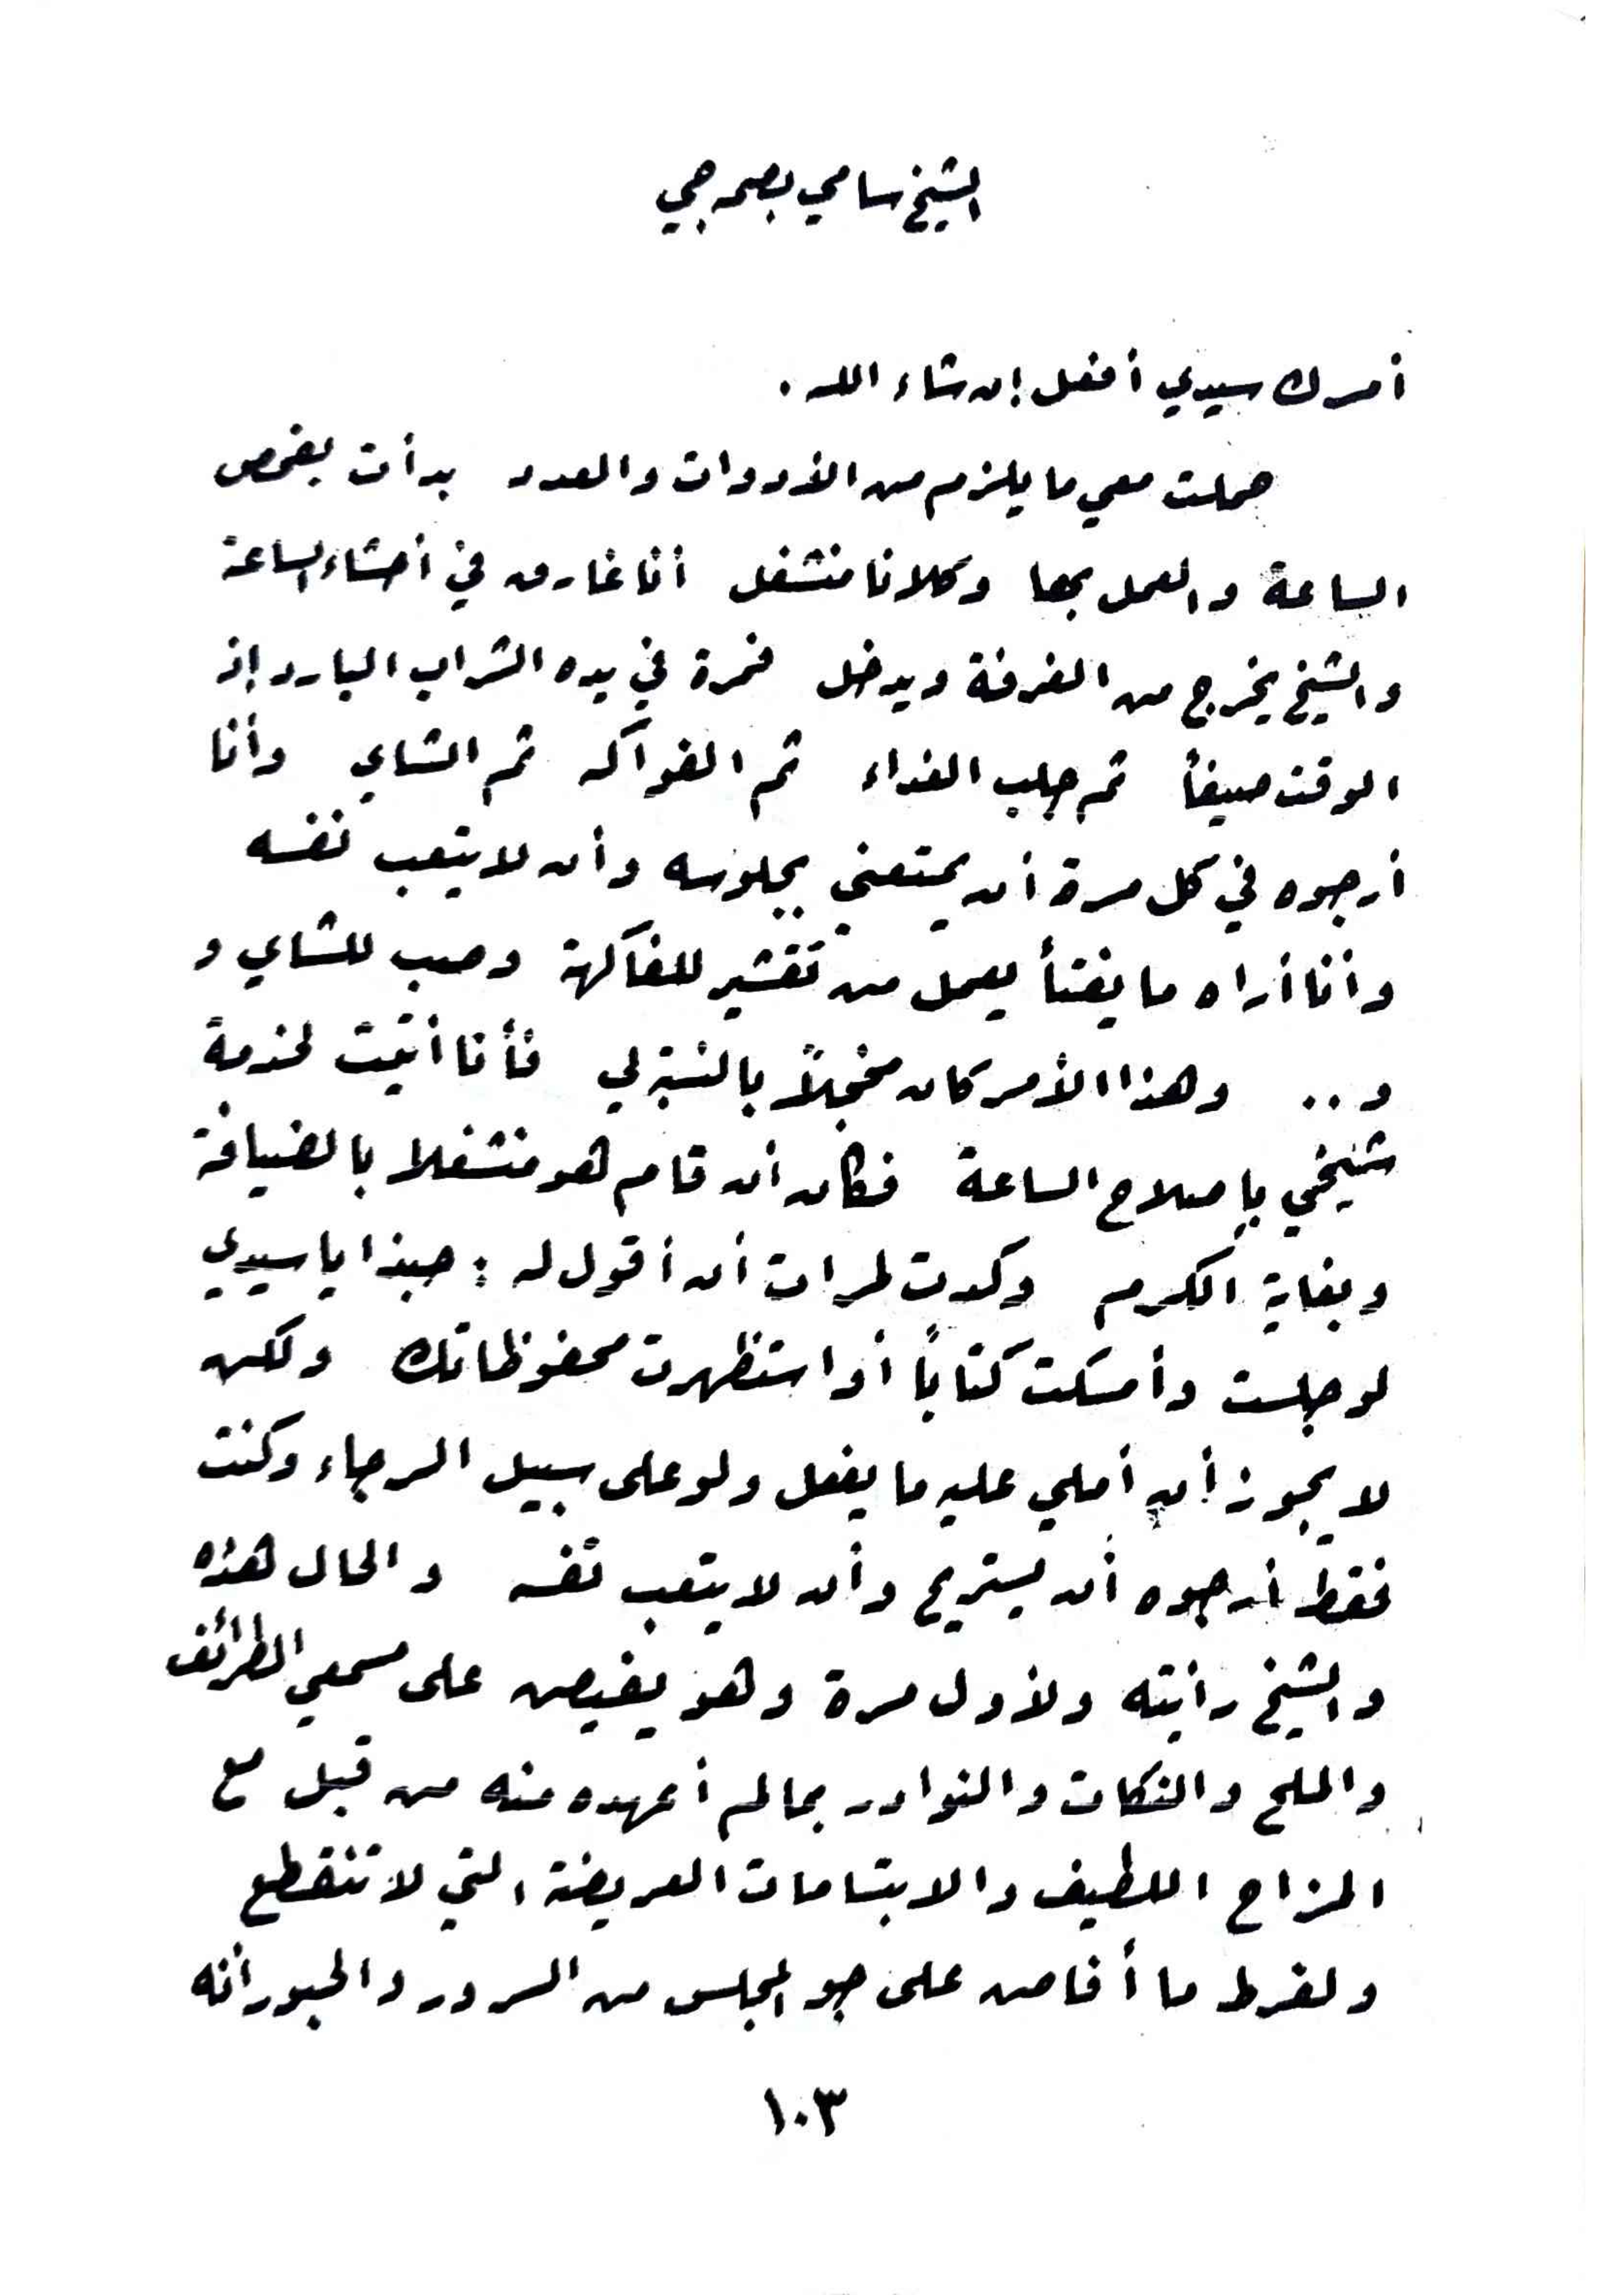 الشيخ سامي بصمه جي
أمرك سيدي أفعل إن شاء الله .
حملت معي ما يلزم من الأدوات والعدد بدأت بفحص
الساعة والعمل بها وكلانا منشغل أنا غارق في أحشاء الساعة
والشيخ يخرج من الغرفة ويدخل فمرة في يده الشراب البارد إذ
الوقت صيفاً ثم جلب الغداء ثم الفواكه ثم الشاي وأنا
أرجوه في كل مرة أن يمتعني بجلوسه وأن لا يتعب نفسه
وأنا أراه ما يفتأ يعمل من تقشير للفاكهة وصب للشاي و
و .. وهذا الأمر كان مخجلاً بالنسبة لي فأنا أتيت لخدمة
شيخي بإصلاح الساعة فكان أن قام هو منشغلا بالضيافة
وبغاية الكرم وكدت لمرات أن أقول له : حبذا يا سيدي
لو جلست وأمسكت كتاباً أو استظهرت محفوظاتك ولكن
لا يجوز أن أملي عليه ما يفعل ولو على سبيل الرجاء وكنت
فقط أرجوه أن يستريح وأن لا يتعب نفسه والحال هذه
والشيخ رأيته ولأول مرة وهو يفيض على مسمعي الطرائف
والملح والنكات والنوادر بما لم أعهده منه من قبل مع
المزاح اللطيف والابتسامات العريضة التي لا تنقطع
ولفرط ما أفاض على جو المجلس من السرور والحبور أنه
١٠٣